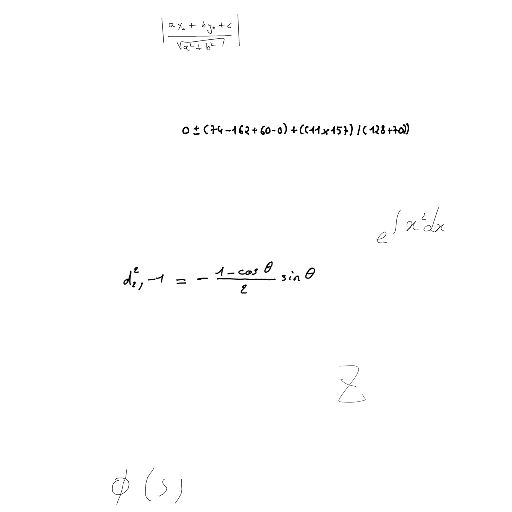 |\frac{ax_0 + by_0 + c}{\sqrt{a^2 + b^2}}|
0 ± (74-162+60-0) + ((11×157)/(128+70))
e^{\int x^2 dx}
d^2_{2,-1} = -\frac{1-\cos θ}{2} \sin θ
Z
ϕ(s)